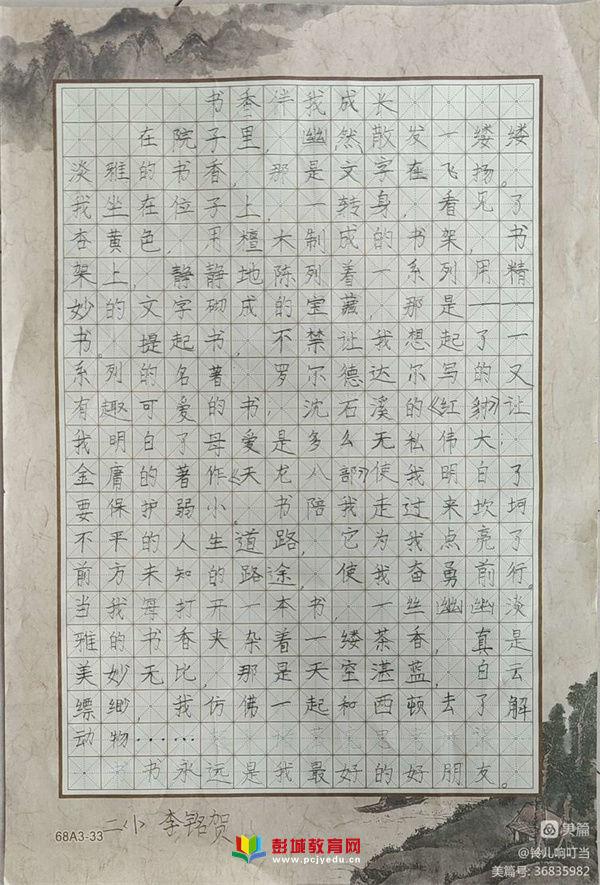 书香伴我成长
在院子里，幽然散发一缕缕
淡雅的书香，那是文字在飞扬。
我坐在位子上，一转身，看见了
杏黄色，用檀木制成的书架，书
架上，静静地陈列着一系列用精
妙的文字砌成的宝藏，那是——
书。提起书，不禁让我想起了一
系列的名著。罗尔德达尔写的又
有趣可爱的书，沈石溪的《红豺》让
我明白了母爱是多么无私伟大；
金庸的著作《天龙八部》使我明白了
要保护弱小。书陪我走过来坎坷
不平的人生道路，它为我点亮了
前方未知的路途，使我奋勇前行。
当我每打开一本书，一丝幽幽淡
雅的书香夹杂着一缕茶香，真是
美妙无比，那是天空湛蓝，白云
缥缈，我仿佛一起和西顿去了解
动物……
书永远是我最好的好朋友。
二小 李铭贺
68A3-33
彭城教育网
www.pcjyedu.cn
美篇
@铃儿响叮当
美篇号: 36835982